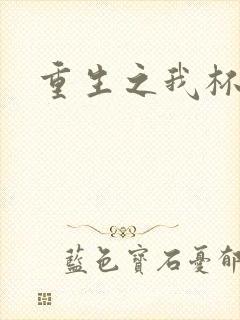 重生之我
藍色寶石憂郁